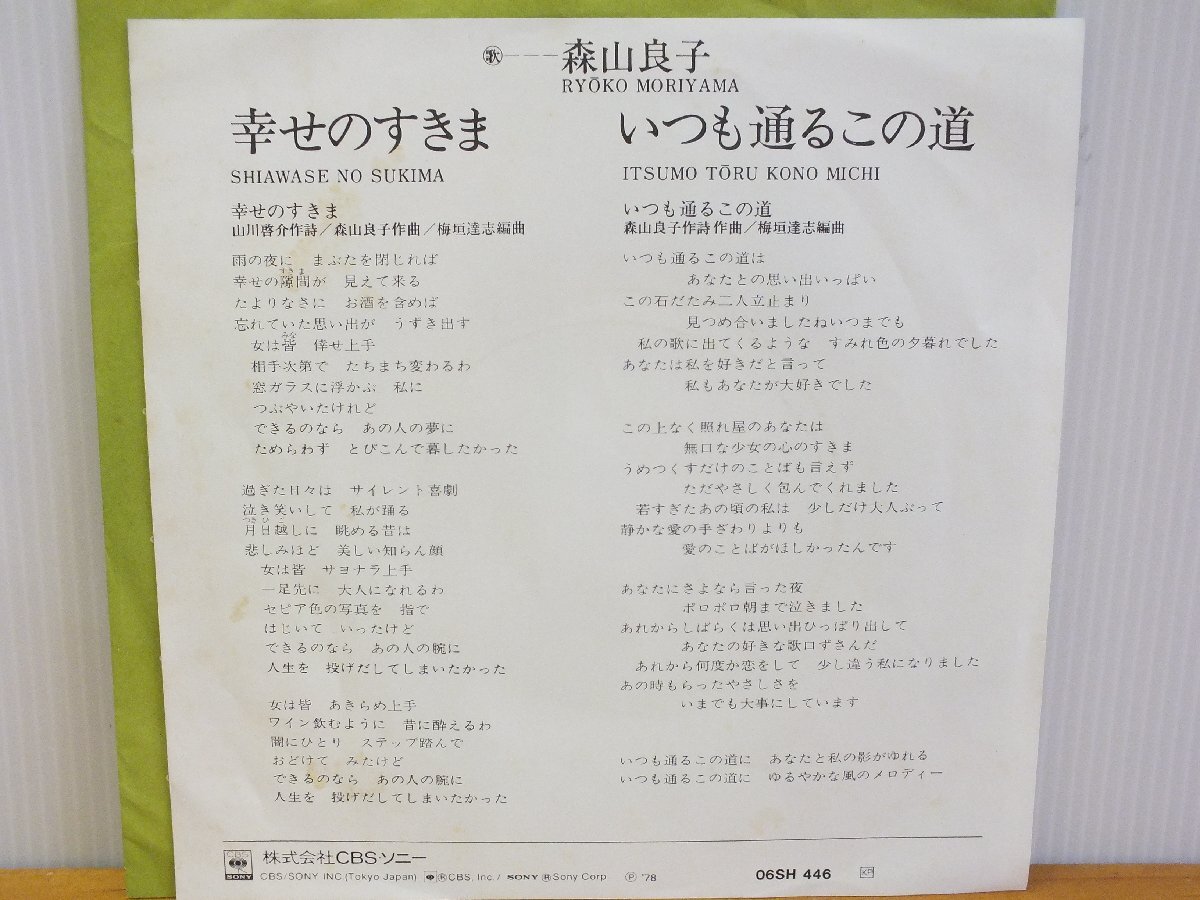 歌───森山良子
RYŌKO MORIYAMA
幸せのすきま
SHIAWASE NO SUKIMA
幸せのすきま
山川啓介作詩/森山良子作曲/梅垣達志編曲
雨の夜に　まぶたを閉じれば
幸せの隙間が　見えて来る
すきま
たよりなさに　お酒を含めば
忘れていた思い出が　うずき出す
女は皆　倖せ上手
みな
相手次第で　たちまち変わるわ
窓ガラスに浮かぶ　私に
つぶやいたけれど
できるのなら　あの人の夢に
ためらわず　とびこんで暮したかった
過ぎた日々は　サイレント喜劇
泣き笑いして　私が踊る
月日越しに　眺める昔は
つきひ
悲しみほど　美しい知らん顔
女は皆　サヨナラ上手
一足先に　大人になれるわ
セピア色の写真を　指で
はじいて　いったけど
できるのなら　あの人の腕に
人生を　投げだしてしまいたかった
女は皆　あきらめ上手
ワイン飲むように　昔に酔えるわ
闇にひとり　ステップ踏んで
おどけて　みたけど
できるのなら　あの人の腕に
人生を　投げだしてしまいたかった
いつも通るこの道
ITSUMO TŌRU KONO MICHI
いつも通るこの道
森山良子作詩作曲/梅垣達志編曲
いつも通るこの道は
あなたとの思い出いっぱい
この石だたみ二人立止まり
見つめ合いましたねいつまでも
私の歌に出てくるような　すみれ色の夕暮れでした
あなたは私を好きだと言って
私もあなたが大好きでした
この上なく照れ屋のあなたは
無口な少女の心のすきま
うめつくすだけのことばも言えず
ただやさしく包んでくれました
若すぎたあの頃の私は　少しだけ大人ぶって
静かな愛の手ざわりよりも
愛のことばがほしかったんです
あなたにさよなら言った夜
ボロボロ朝まで泣きました
あれからしばらくは思い出ひっぱり出して
あなたの好きな歌口ずさんだ
あれから何度か恋をして　少し違う私になりました
あの時もらったやさしさを
いまでも大事にしています
いつも通るこの道に　あなたと私の影がゆれる
いつも通るこの道に　ゆるやかな風のメロディー
CBS SONY
株式会社CBS・ソニー
CBS/SONY INC.(Tokyo Japan) ®CBS, Inc./ SONY ®Sony Corp. Ⓟ'78 06SH 446 KP